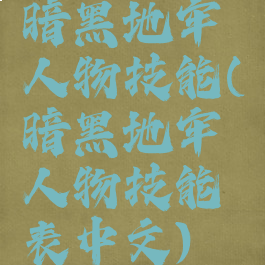 暗黑地牢
人物技能(
暗黑地牢
人物技能
表中文)